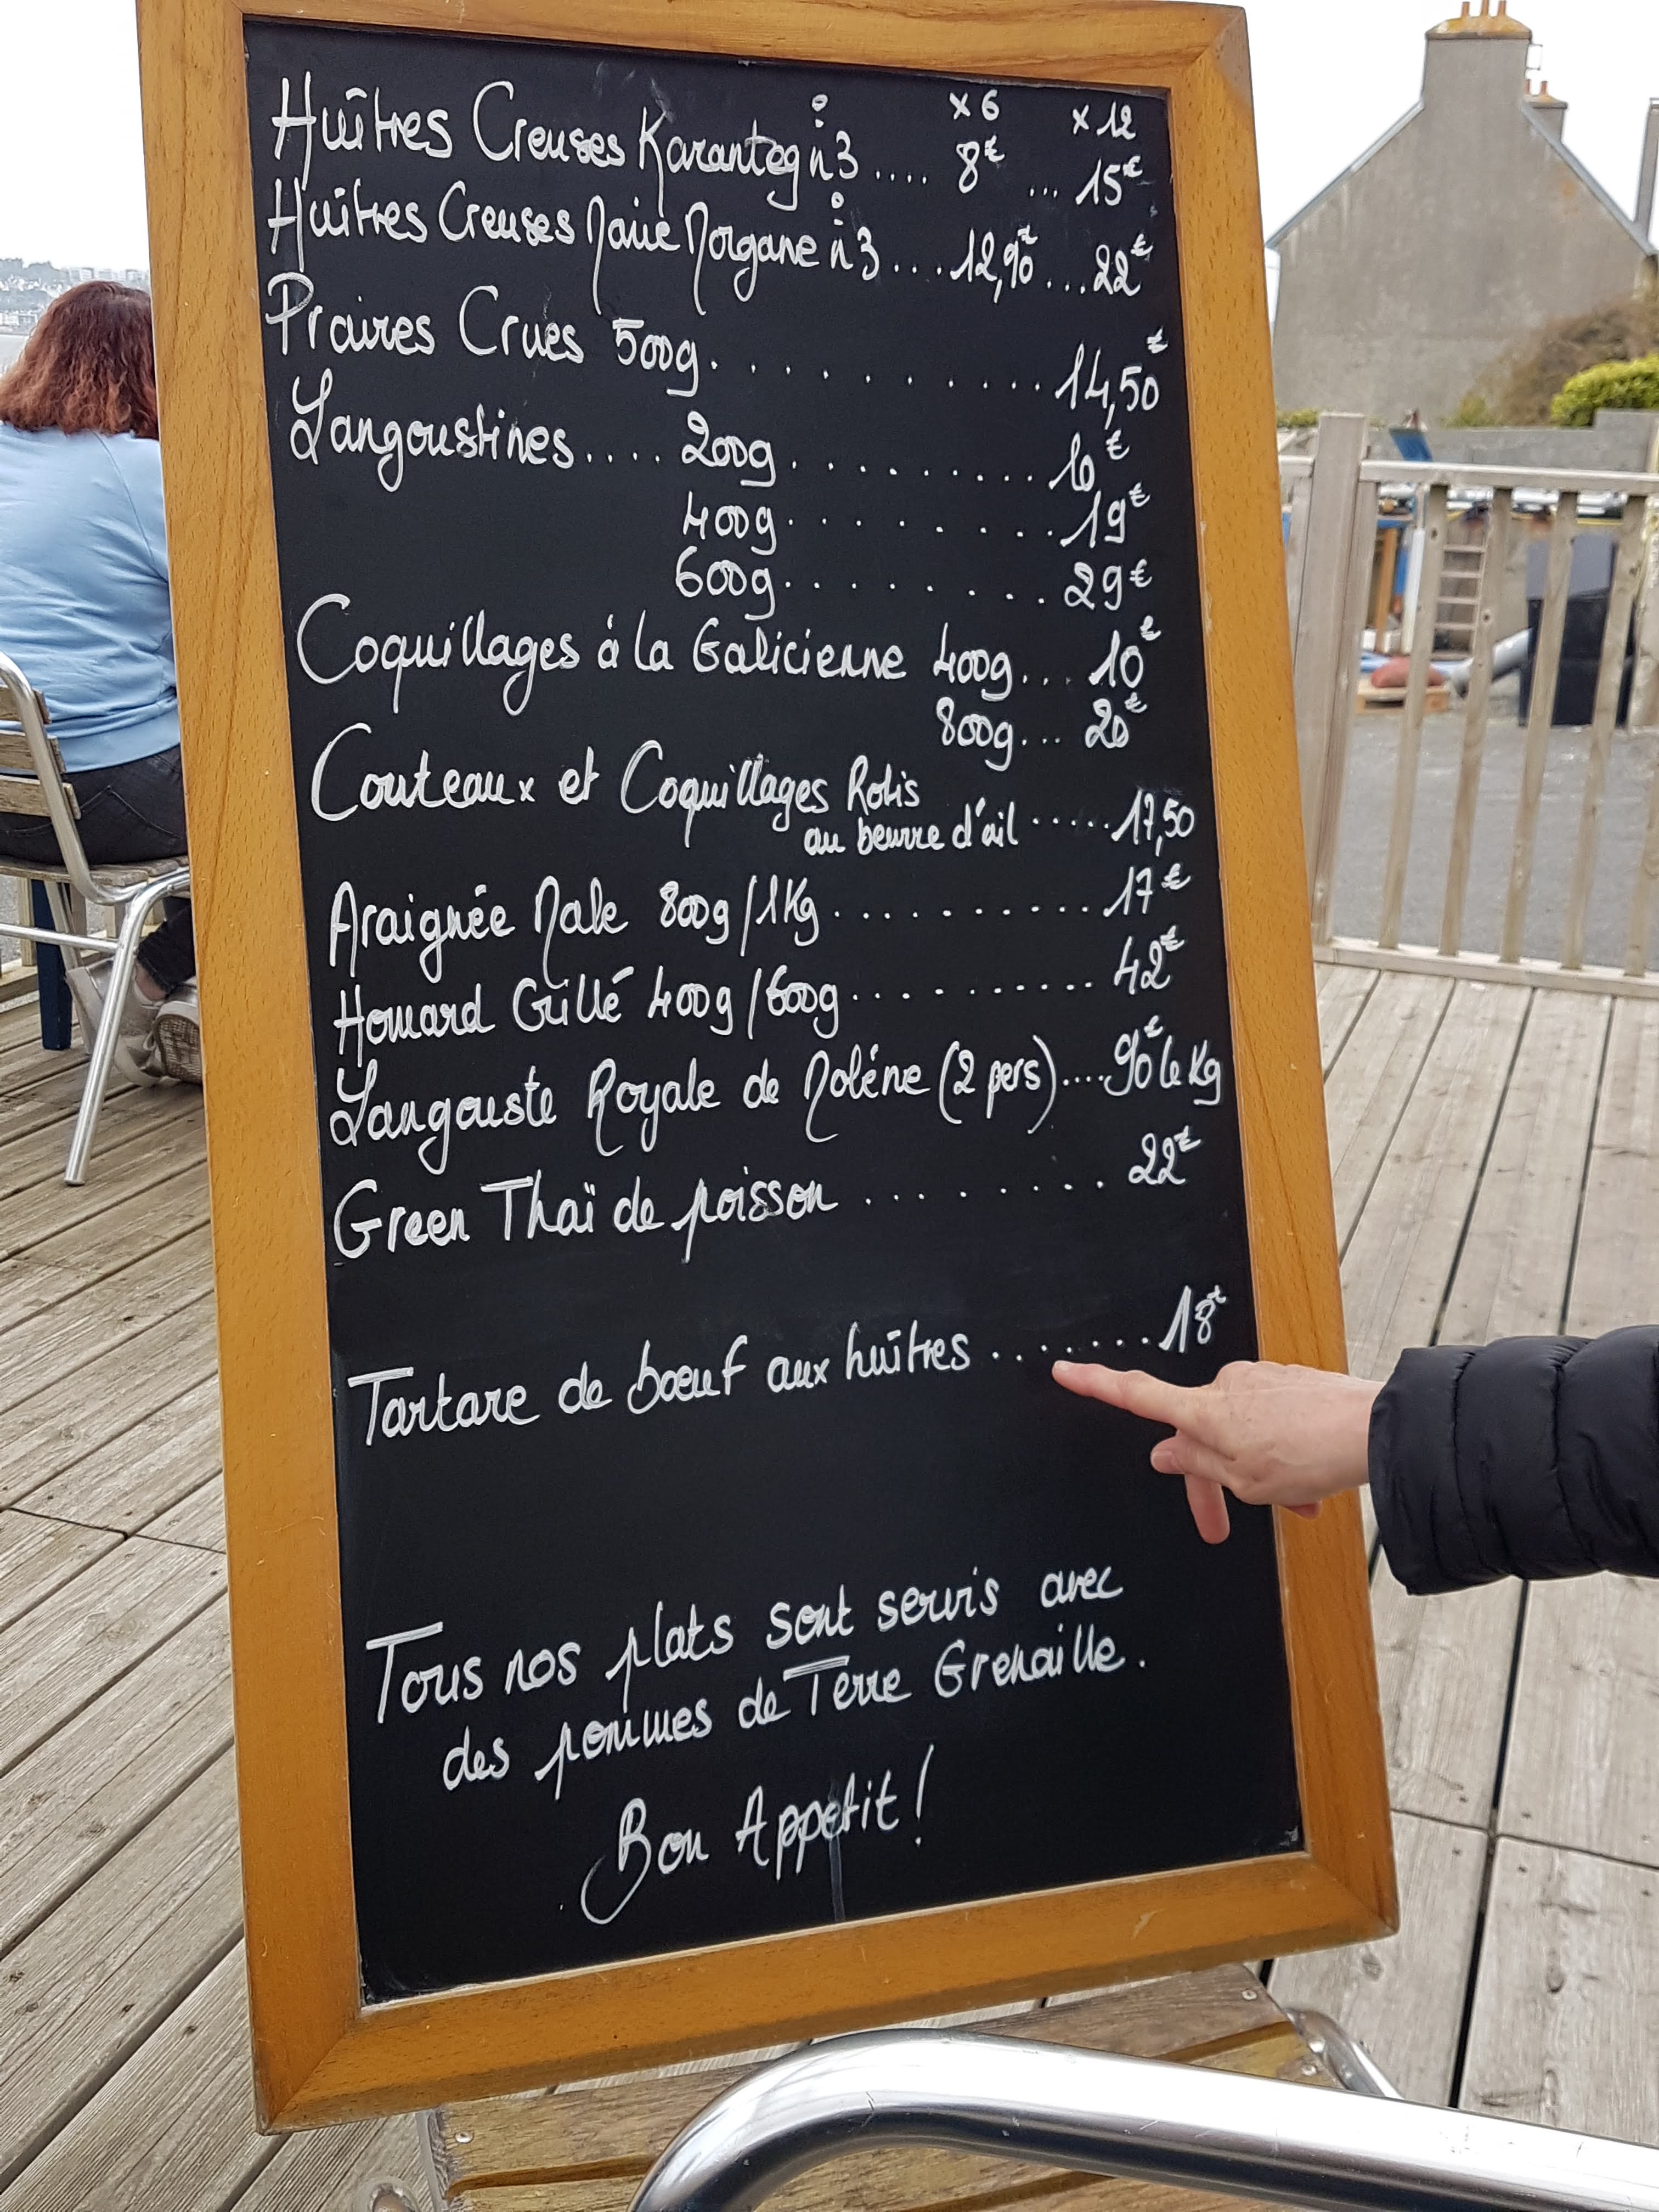 x 6 x 12
Huîtres Creuses Karanteg n°3 .... 8€ ... 15€
Huîtres Creuses Marie Morgane n°3 .... 12,90€ ... 22€
Praires Crues 500g. . . . . . . . . . . . 14,50€
Langoustines.... 200g . . . . . . . . . 10€
400g . . . . . . . . 19€
600g . . . . . . . . 29€
Coquillages à la Galicienne 400g... 10€
800g... 20€
Couteaux et Coquillages Rotis
au beurre d'ail ..... 17,50
Araignée Male 800g/1Kg . . . . . . . . . . 17€
Homard Grillé 400g/600g . . . . . . . . . . 42€
Langouste Royale de Molène (2 pers).... 90€ le Kg
Green Thaï de poisson . . . . . . . . 22€
Tartare de bœuf aux huîtres . . . . . . . 18€
Tous nos plats sont servis avec
des pommes de Terre Grenaille.
Bon Appetit !